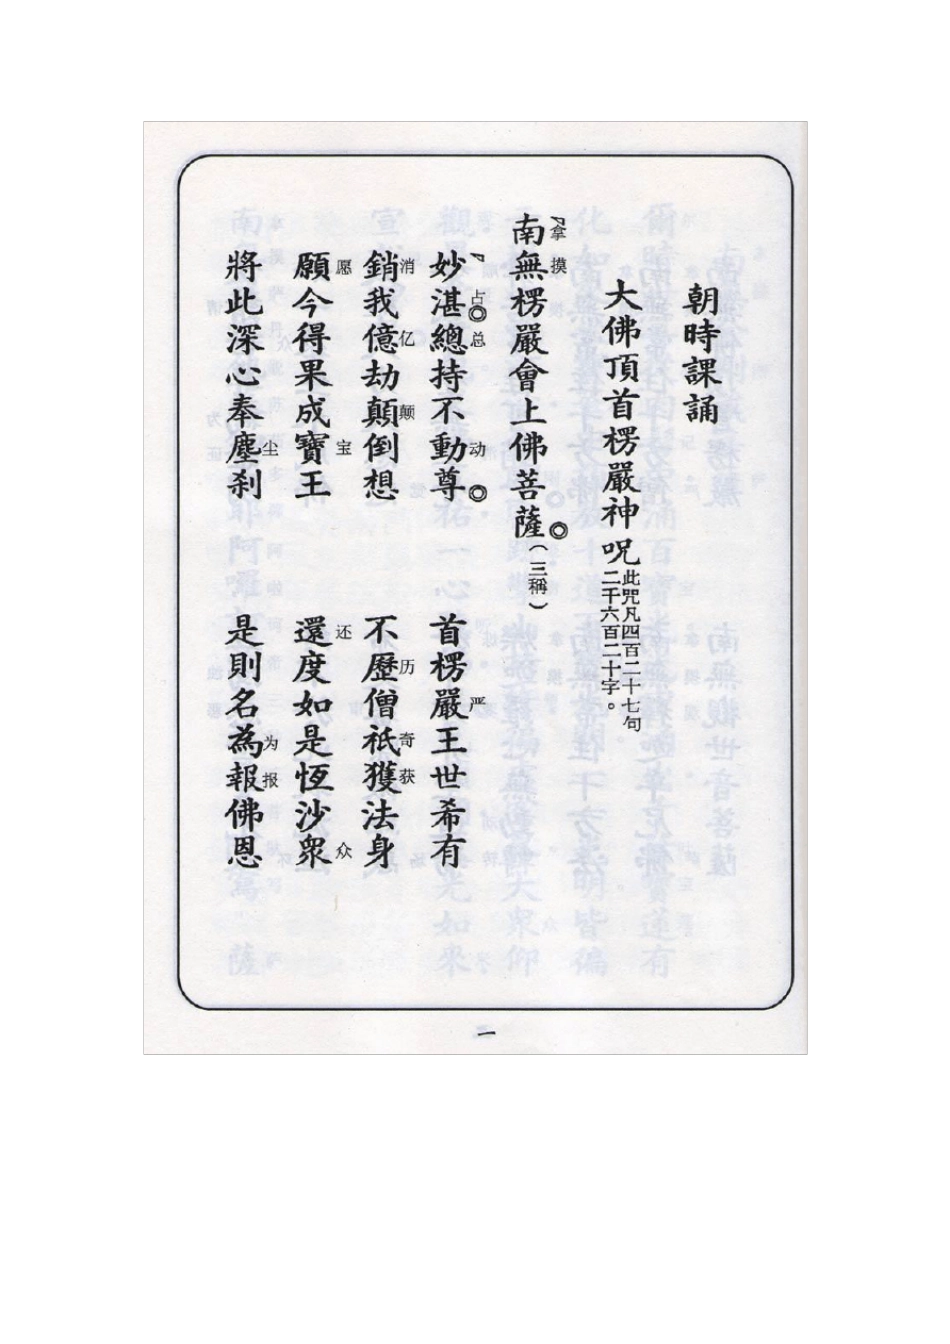 朝時課誦
大佛頂首楞嚴神咒 此咒凡四百二十七句
二千六百二十字。
拿摸
南無楞嚴會上佛菩薩(三稱)
占总动 严
妙湛總持不動尊 首楞嚴王世希有
消亿颠 历奇获
銷我億劫顛倒想 不歷僧祇獲法身
愿宝 还众
願今得果成寶王 還度如是恆沙眾
尘 为报
將此深心奉塵剎 是則名為報佛恩
一